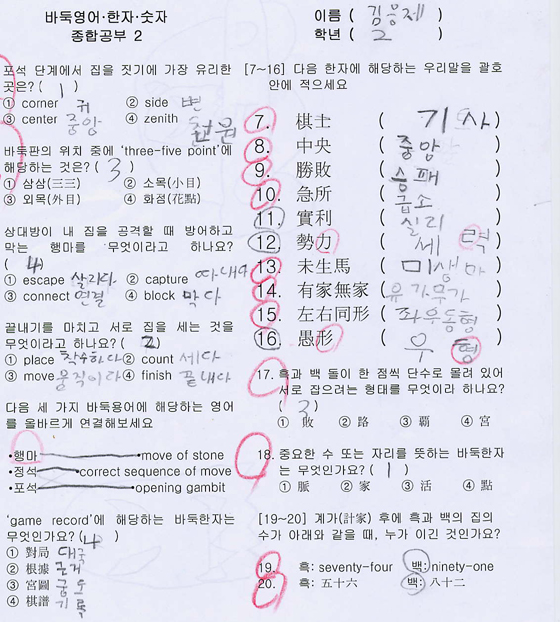 바둑영어·한자·숫자
종합공부 2
이름 ( 김응제 )
학년 ( 2 )
포석 단계에서 집을 짓기에 가장 유리한
곳은? ( 1 )
① corner 귀 ② side 변
③ center 중앙 ④ zenith 천원
바둑판의 위치 중에 'three-five point'에
해당하는 것은? ( 3 )
① 삼삼(三三) ② 소목(小目)
③ 외목(外目) ④ 화점(花點)
상대방이 내 집을 공격할 때 방어하고
막는 행마를 무엇이라고 하나요?
( 4 )
① escape 살리다 ② capture 따내다
③ connect 연결 ④ block 막다
끝내기를 마치고 서로 집을 세는 것을
무엇이라고 하나요? ( 2 )
① place 착수하다 ② count 세다
③ move 움직이다 ④ finish 끝내다
다음 세 가지 바둑용어에 해당하는 영어
를 올바르게 연결해보세요
•행마 •move of stone
•정석 •correct sequence of move
•포석 •opening gambit
'game record'에 해당하는 바둑한자는
무엇인가요? ( 4 )
① 對局 대국
② 根據 근거
③ 宮圖 궁도
④ 棋譜 기록
[7~16] 다음 한자에 해당하는 우리말을 괄호
안에 적으세요
7. 棋士 ( 기사 )
8. 中央 ( 중앙 )
9. 勝敗 ( 승패 )
10. 急所 ( 급소 )
11. 實利 ( 실리 )
12. 勢力 ( 세력 )
13. 未生馬 ( 미생마 )
14. 有家無家 ( 유가무가 )
15. 左右同形 ( 좌우동형 )
16. 愚形 ( 우형 )
17. 흑과 백 돌이 한 점씩 단수로 몰려 있어
서로 잡으려는 형태를 무엇이라 하나요?
( 3 )
① 敗 ② 路 ③ 覇 ④ 宮
18. 중요한 수 또는 자리를 뜻하는 바둑한자
는 무엇인가요? ( 1 )
① 脈 ② 家 ③ 活 ④ 點
[19~20] 계가(計家) 후에 흑과 백의 집의
수가 아래와 같을 때, 누가 이긴 것인가요?
19. 흑: seventy-four 백: ninety-one
20. 흑: 五十六 백: 八十二